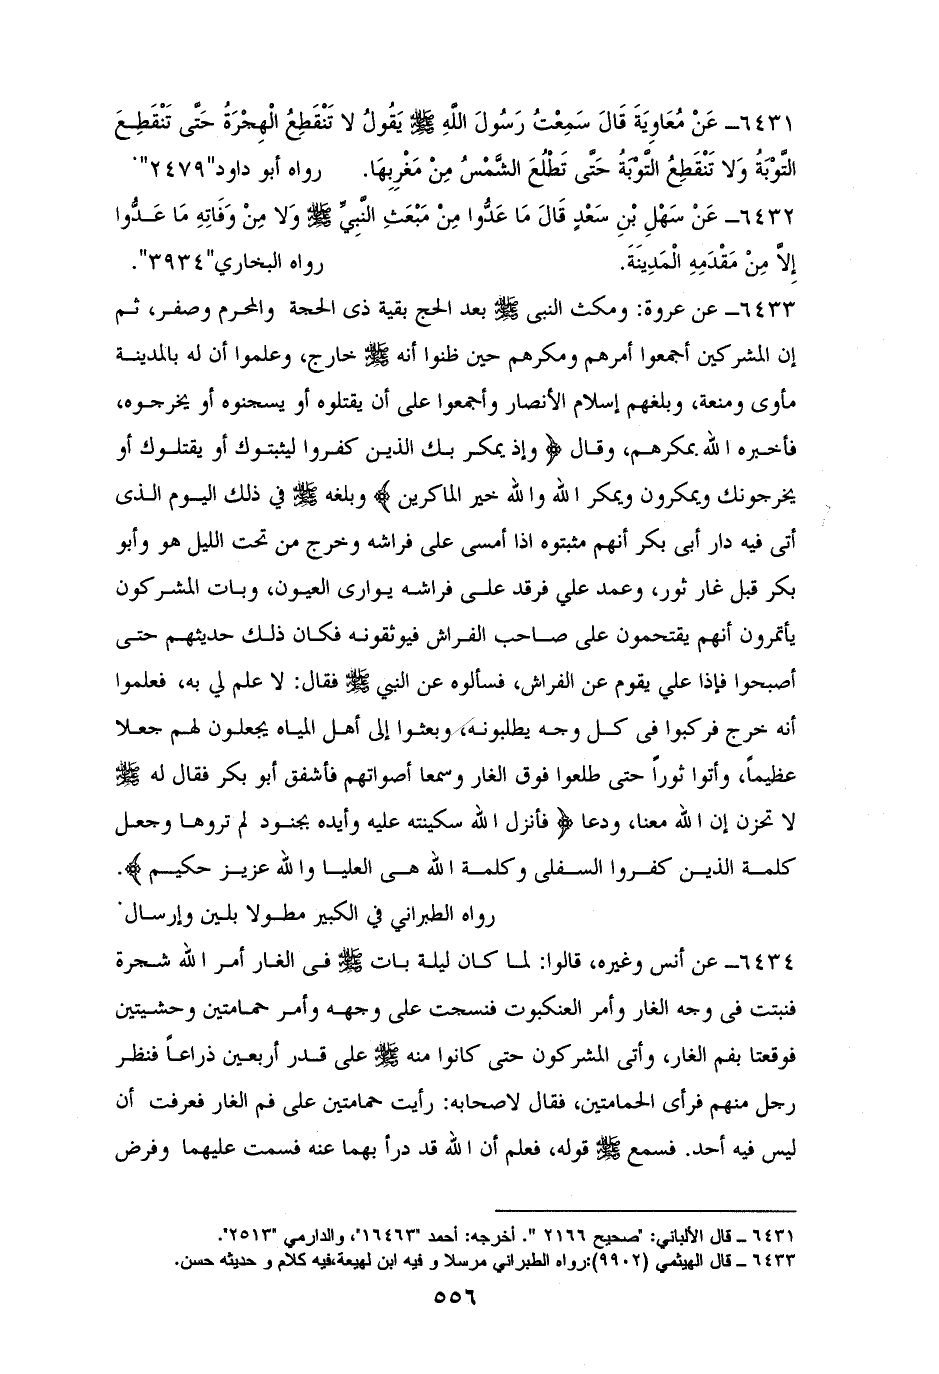 ٦٤٣١ـ عَنْ مُعَاوِيَةَ قَالَ سَمِعْتُ رَسُولَ اللَّهِ ﷺ يَقُولُ لا تَنْقَطِعُ الْهِجْرَةُ حَتَّى تَنْقَطِعَ
التَّوْبَةُ وَلا تَنْقَطِعُ التَّوْبَةُ حَتَّى تَطْلُعَ الشَّمْسُ مِنْ مَغْرِبِهَا. رواه أبو داود"٢٤٧٩".
٦٤٣٢ـ عَنْ سَهْلِ بْنِ سَعْدٍ قَالَ مَا عَدُّوا مِنْ مَبْعَثِ النَّبِيِّ ﷺ وَلا مِنْ وَفَاتِهِ مَا عَـدُّوا
إِلاَّ مِنْ مَقْدَمِهِ الْمَدِينَةَ. رواه البخاري"٣٩٣٤".
٦٤٣٣ـ عن عروة: ومكث النبى ﷺ بعد الحج بقية ذى الحجة والمحرم وصفر، ثـم
إن المشركين أجمعوا أمرهم ومكرهم حين ظنوا أنه ﷺ خارج، وعلموا أن له بالمدينـة
مأوى ومنعة، وبلغهم إسلام الأنصار وأجمعوا على أن يقتلوه أو يسجنوه أو يخرجـوه،
فأخـبره الله بمكرهـم، وقـال ﴿ وإذ يمكـر بـك الذيـن كفـروا ليثبتـوك أو يقتلـوك أو
يخرجونك ويمكرون ويمكر الله والله خير الماكرين ﴾ وبلغه ﷺ في ذلك اليوم الـذى
أتى فيه دار أبى بكر أنهم مثبتوه اذا أمسى على فراشه وخرج من تحت الليل هو وأبو
بكر قبل غار ثور، وعمد علي فرقد علـى فراشـه يـوارى العيـون، وبـات المشـركون
يأتمرون أنهم يقتحمون على صـاحب الفراش فيوثقونـه فكـان ذلـك حديثهـم حتـى
أصبحوا فإذا علي يقوم عن الفراش، فسألوه عن النبي ﷺ فقال: لا علم لي به، فعلموا
أنه خرج فركبوا فى كـل وجـه يطلبونـه، وبعثـوا إلى أهـل المياه يجعلـون لهـم جعـلا
عظيماً، وأتوا ثوراً حتى طلعوا فوق الغار وسمعا أصواتهم فأشفق أبو بكر فقال له ﷺ
لا تحزن إن الله معنا، ودعا ﴿ فأنزل الله سكينته عليه وأيده بجنـود لم تروهـا وجعـل
كلمـة الذيـن كفـروا السـفلى وكلمـة الله هـى العليـا والله عزيـز حكيـم ﴾.
رواه الطبراني في الكبير مطـولا بلـين وإرسـال.
٦٤٣٤ـ عن أنس وغيره، قالوا: لمـا كـان ليلـة بـات ﷺ فـى الغـار أمـر الله شـجرة
فنبتت فى وجه الغار وأمر العنكبوت فنسجت على وجهـه وأمـر حمـامتين وحشـيتين
فوقعتا بفم الغار، وأتى المشركون حتى كانوا منه ﷺ على قـدر أربعـين ذراعـاً فنظـر
رجل منهم فرأى الحمامتين، فقال لاصحابه: رأيت حمامتين على فم الغار فعرفت أن
ليس فيه أحد. فسمع ﷺ قوله، فعلم أن الله قد درأ بهما عنه فسمت عليهما وفرض
٦٤٣١ ـ قال الألباني: "صحيح ٢١٦٦ ". أخرجه: أحمد "١٦٤٦٣"، والدارمي "٢٥١٣".
٦٤٣٣ ـ قال الهيثمي (٩٩٠٢):رواه الطبراني مرسلا و فيه ابن لهيعة،فيه كلام و حديثه حسن.
٥٥٦